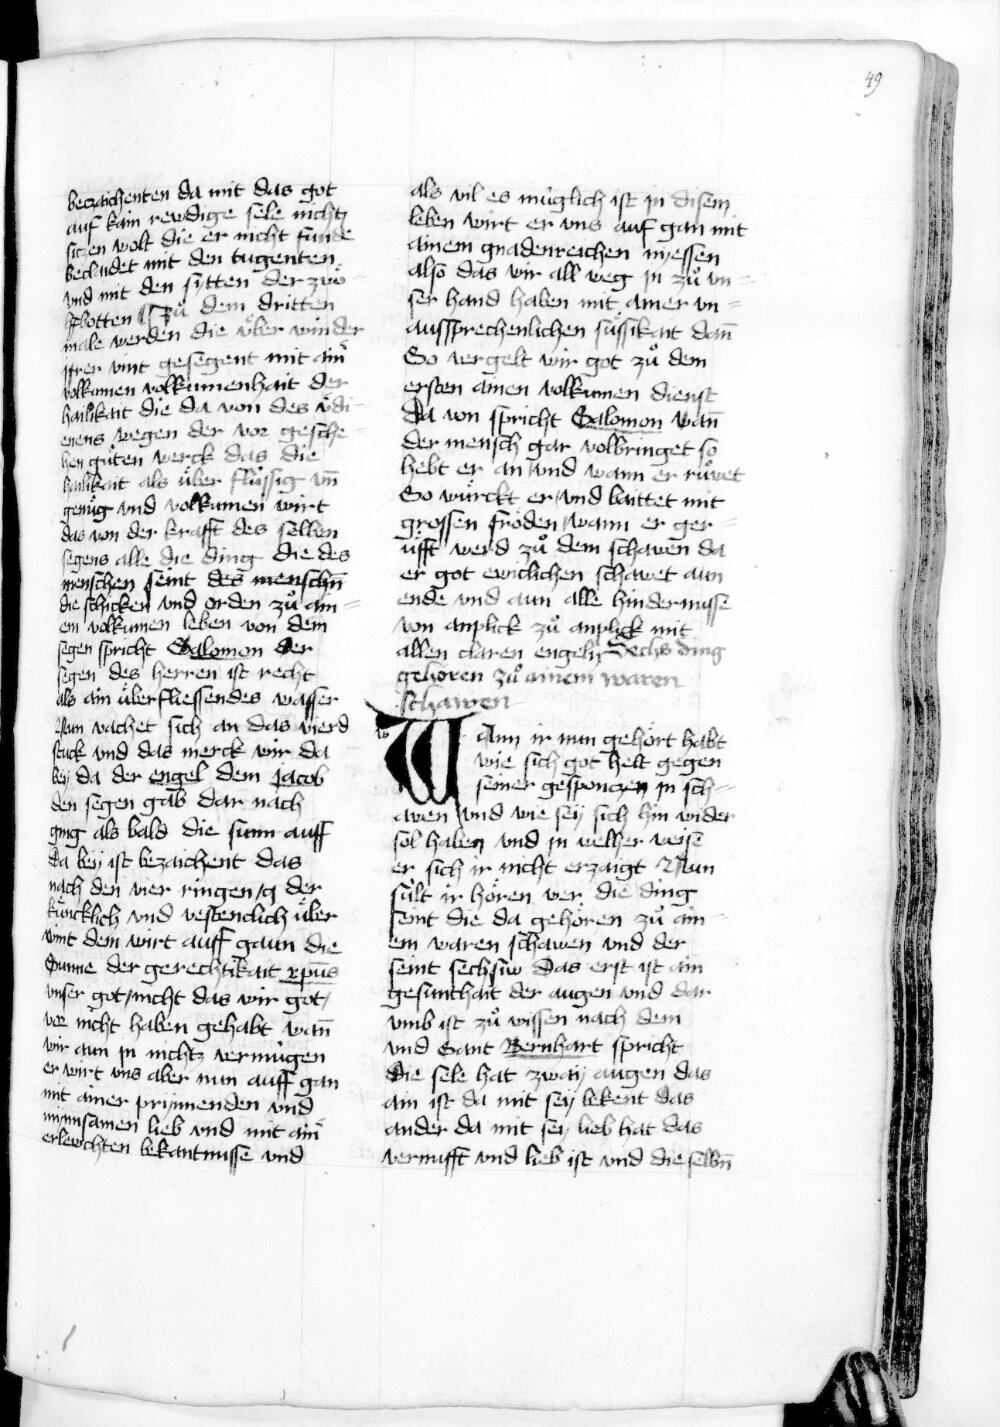 49
beczaichenten da mit das got
auf kain rewdige sele nichtz
siczen wolt die er nicht funde
beclaidet mit den tugenten
vnd mit den sytten der zwo᷑
lffbotten Zů dem dritten
male werden die vͤber winder
jrer vint gesegent mit aim̄
volkumen volkumenhait der
hailikait die da von des
enens wegen der vor gesche¬
hen gůten werck das die
hailikait als vͤber flüssig vn̄
genuͤg vnd volkumen wirt
das von der krafft des selben
segens alle die ding die des
menschen seint des menschn̄
die schicken vnd orden zů ain¬
em volkumen leben von dem
segen spricht Salomon der
segen des herren ist recht
als ain überfliessendes wasser
Nun vachet sich an das vierd
stuck vnd das merck wir da
beÿ da der engel dem jacob
den segen gab dar nach
ging als bald die sunn auff
Da beÿ ist bezaichent das
nach den vier ringen/g der
kuͤncklich vnd vestenclich uͤber
vint dem wirt auff gaun die
Sunne der gerechtikait xpūs
vnser got/nicht das wir got/
vor nicht haben gehabt wan̄
wir aun jn nichtz vermügen
er wirt vns aber nun auff gan
mit ainer prÿnnenden vnd
mynnsamen lieb vnd mit aim̄
erlewchten bekantnusse vnd
als vil es müglich ist jn disem
leben wirt er vns auf gan mit
ainem gnadenreichen niessen
also das wir all weg jn zů vn¬
ser hand haben mit ainer vn¬
aussprechenlichen süssikait dan̄
So vergelt wir got zů dem
ersten ainen volkumen dienst
Da von spricht Salomon wan̄
der mensch gar volbringet so
hebt er an vnd wann er růwet
So würckt er/vnd baittet mit
grossen fröden/wann er ger¬
üfft werd zů dem schawen da
er got ewiclichen schawet aun
ende vnd aun alle hindernusse
von anplick zů anplick mit
allen claren engeln Sechs ding
gehoren zů ainem waren
schawen
Wann ir nun gehört habt
wie sich got helt gegen
seiner gesponczen jn sch¬
awen vnd wie seÿ sich hin wider
sol haben vnd jn welher weise
er sich ir nicht erzaigt Nun
sült ir hören wer die ding
seint die da gehören zů ain¬
em waren schawen vnd der
seint sechsüw Das erst ist ain
gesunthait der augen vnd dar
vmb ist zů wissen nach dem
vnd Sant Bernhart spricht
Die sele hat zwaÿ augen das
ain ist da mit seÿ bekent das
ander da mit seÿ lieb hat das
vernufft vnd lieb ist vnd die selbn̄